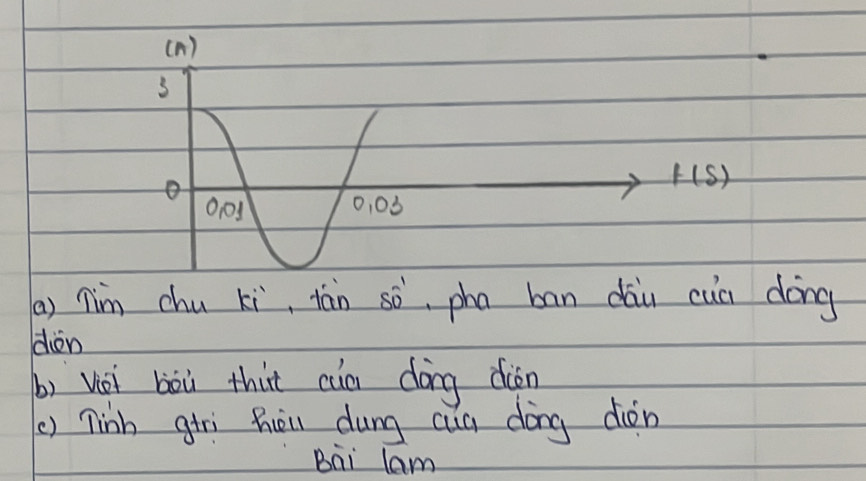 (A)
3
0
0,01
0,03
t(s)
a) Tìm chu kì, tần số, pha ban đầu của dòng
điện
b) Viết biểu thức của dòng điện
c) Tính gtrị hiệu dụng của dòng điện
Bài làm